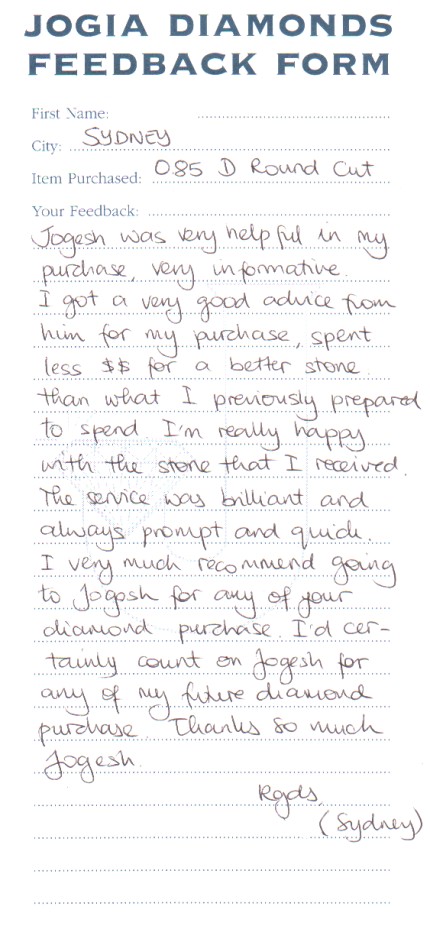 JOGIA DIAMONDS
FEEDBACK FORM
First Name:
City: SYDNEY
Item Purchased: 0.85 D Round Cut
Your Feedback:
Jogesh was very helpful in my
purchase, very informative.
I got a very good advice from
him for my purchase, spent
less $$ for a better stone.
than what I previously prepared
to spend. I'm really happy
with the stone that I received.
The service was brilliant and
always prompt and quick.
I very much recommend going
to Jogesh for any of your
diamond purchase. I'd cer-
tainly count on Jogesh for
any of my future diamond
purchase. Thanks so much
Jogesh.
Rgds,
(Sydney)